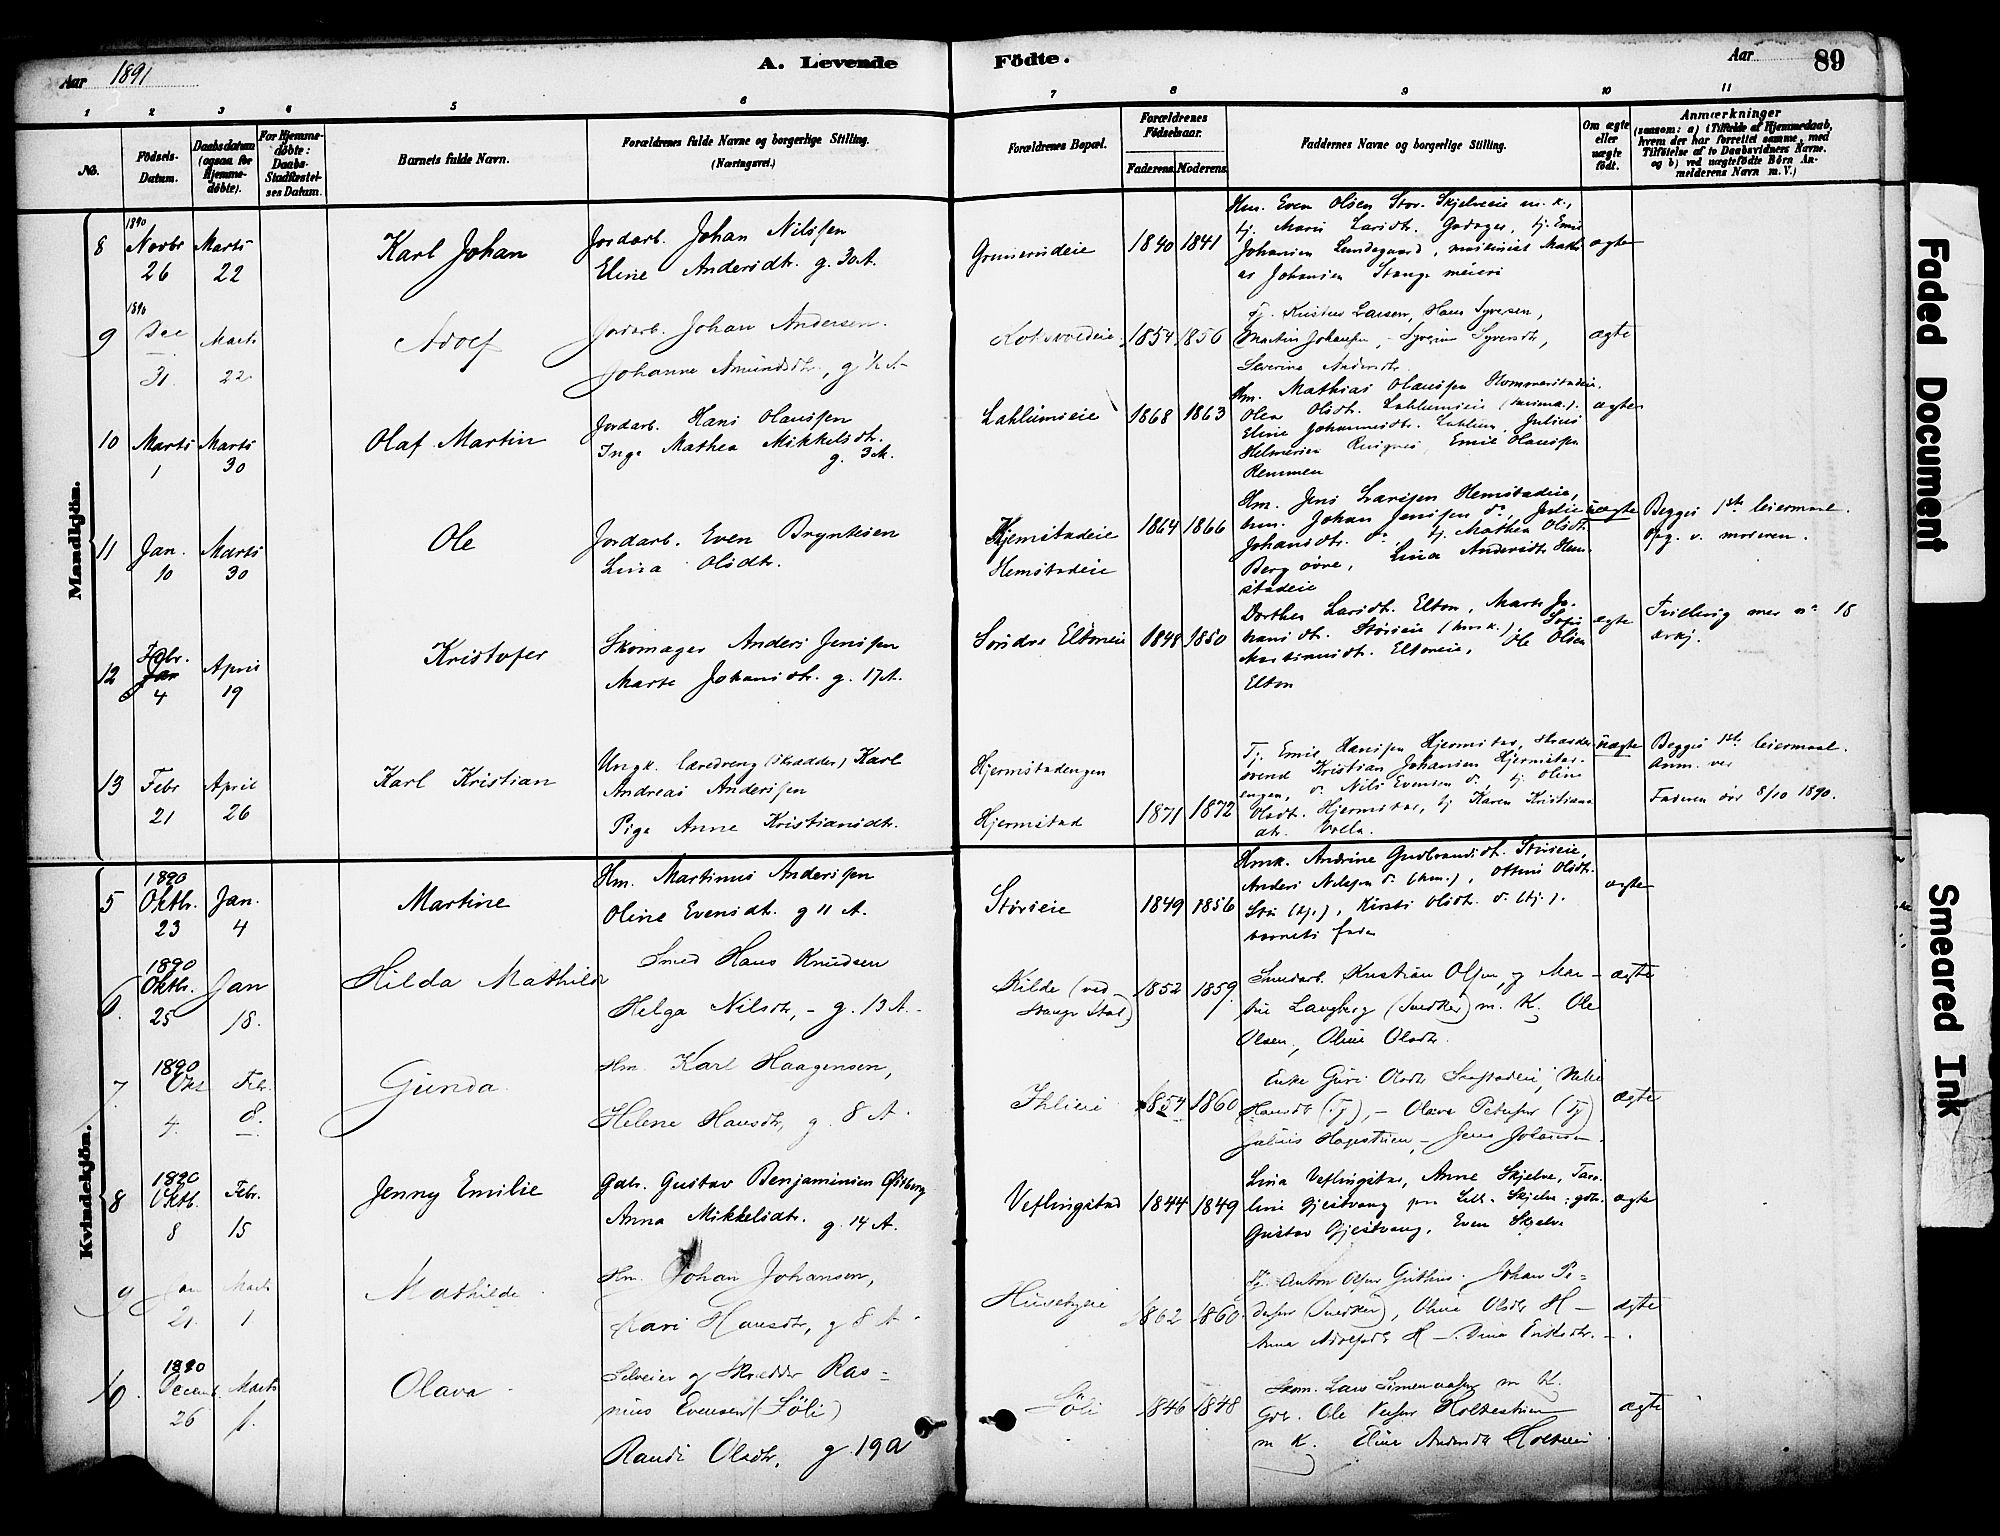 Aar 1891
A. Levende
Födte.
Aar
89
1 2 3 4 5 6 7 8 9 10 11
No.
Födsels-Datum.
Daabsdatum (ogsaa for Hjemmedöbte).
For Hjemmedöbte: Daabs-Stadfæstelses Datum.
Barnets fulde Navn.
Forældrenes fulde Navne og borgerlige Stilling. (Næringsvei.)
Forældrenes Bopæl.
Forældrenes Födselsaar.
Faderens. Moderens.
Faddernes Navne og borgerlige Stilling.
Om ægte eller uægte födt.
Anmærkninger
(saasom: a) i Tilfælde af Hjemmedaab, hvem der har forrettet samme, med Tilföielse af to Daabsvidners Navne. og b) ved uægtefödte Börn Anmelderens Navn m. V.)
Mandkjön.
8 1890 Novbr 26 Marts 22 Karl Johan
Jordarb. Johan Nilssen
Eline Andersdt. g. 30 A.
1840 1841
Hm. Even Olsen Stor. Skjelveie m. k.,
tj. Mari Larsdt. Godager, tj. Emil
Johansen Lundegaard,
Johansen Stange meieri
ægte
9 1890 Dec 31. Marts 22. Adolf
Jordarb. Johan Andersen.
Johanne Amundsdtr, g
1854 1856
Tj. Kristius Larsen, Hans Syversen,
Martin Johansen, Syverine Syversdtr,
Severine Andersdtr.
ægte
10 Marts 1 Marts 30 Olaf Martin
Jordarb. Hans Olaussen
Inge Mathea Mikkelsdt.
g. 3 A.
Lahlumseie 1868 1863
Hm. Mathias Olaussen Hommerstadeie.
Olea Olsdt. Lahlumseie
Eline Johannesdt. Lahlum, Julius
Helmersen Emil Olaussen
Remmen
ægte
11 Jan. 10 Marts 30 Ole
Jordarb. Even Bryntesen
Lina Olsdtr.
Hjemstadeie
Hemstadeie
1864 1866
Hm. Jens Larssen Hemstadeie,
hm. Johan Jenssen do, Julie
Johansdt. do, tj. Mathea Olsdt.
Berg övre, Lina Andersdt. Hem-
stadeie
uægte
Begges 1ste leiermaal.
Opg. v. moderen.
12 Febr. 4 April 19 Kristofer
Skomager Anders Jenssen
Marte Johansdtr. g. 17 A.
Söndre Eltoneie 1848 1850
Dorthea Larsdt. Elton, Marte Jo-
hansdt. Störseie (hmk.), Sofie
Martinusdt. Eltoneie, Ole Olsen
Elton
ægte
Tvilling med no 18
kvkj.
13 Febr 21 April 26 Karl Kristian
Ungk. læredreng (skrædder) Karl
Andreas Anderssen
Pige Anne Kristiansdt.
Hjermstadengen
Hjermstad
1871 1872
Tj. Emil Hanssen Hjermstad, skrædder-
svend Kristian Johansen Hjermstad-
engen, do Nils Evensen do, tj. Oline
Olsdt. Hjermstad, tj Karen Kristians-
dt.
uægte
Begges 1ste leiermaal.
Anm. ved
Faderen död 8/10 1890.
Kvindekjön.
5 1890 Oktbr. 23 Jan. 4 Martine
Hm. Martinus Anderssen
Oline Evensdt. g 11 A.
Störseie 1849 1856
Hmk. Andrine Gudbrandsdt. Störseie,
Anders Nilssen do (hm.), Olsdt.
(tj.), Kirsti Olsdt. do (tj.).
barnets fader
ægte
6. 1890 Oktbr. 25 Jan 18. Hilda Mathilde
Smed Hans Knudsen
Helga Nilsdtr, - g. 13 A.
Kilde (ved
Stange Stat.)
1852 1859
Kristian Olsen, og Mar-
Langberg (Snedker) m. K. Ole
Olsen, Oline Olsdtr.
ægte
7. 1890 Okt 4. Feb. 8. Gunda
Hm. Karl Haagensen,
Helene Hansdtr, g. 8 A.
1854 1860
Enke Guri Olsdtr
Hansdtr (Tj), - Olava Pedersen (Tj)
Julius - Jens Johansen
ægte
8 1890 Oktb. 8 Febr. 15 Jenny Emilie
Gdr. Gustav Benjaminsen Östberg
Anna Mikkelsdt. g. 14 A.
Veflingstad 1844 1849
Lina Veflingstad, Anne Skjelve,
Gjestvang Skjelve, gdr.
Gustav Gjestvang, Even Skjelve
ægte
9 Jan 21. Marts 1 Mathilde
Hm. Johan Johansen,
Mari Hansdtr, g 8 A.
Husebyeie 1862 1860.
Tj. Anton Olsen Johan Pe-
dersen (Snedker), Oline Olsdtr H -
Anna Adolfsdtr H -. Dina Eriksdtr. -
ægte
10. 1890 Decemb. 26 Marts 1. Olava
Selveier og Skrædder Ras-
mus Evensen (Löli)
Randi Olsdtr. g. 19 a
Löli 1846 1848
Skom. Lars Simensen m K.
Gdr. Ole
m K. Eline Andersdtr
ægte
Faded Document
Smeared Ink